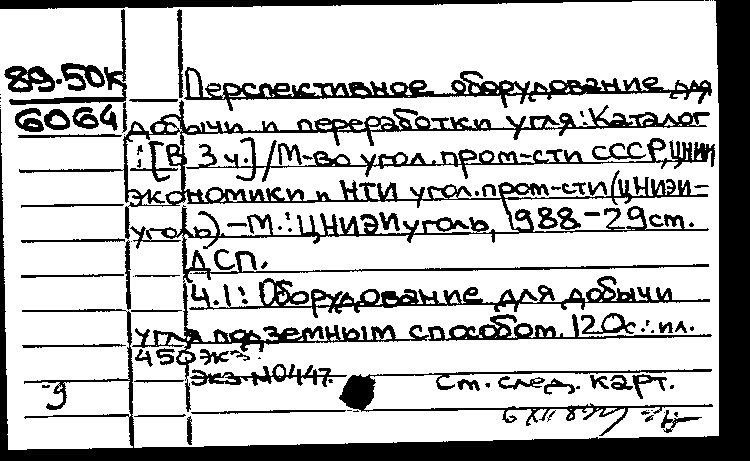 89-50к
6064
Перспективное оборудование для
добычи и переработки угля: Каталог
: [В 3 ч.] / М-во угол. пром-сти СССР, ЦНИИ
экономики и НТИ угол. пром-сти (ЦНИЭИ-
уголь). - М.: ЦНИЭИуголь, 1988. - 29 см.
ДСП.
Ч.1: Оборудование для добычи
угля подземным способом. 120с.: ил.
450 экз.
экз. N0447.
-9
ст. след. карт.